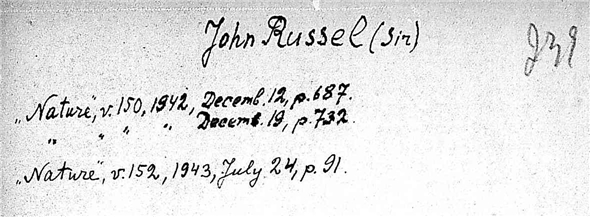 John Russel (Sir)
„Nature", v. 150, 1942, Decemb. 12, p. 687.
„ „ „ „ Decemb. 19, p. 732.
„Nature", v. 152, 1943, July 24, p. 91.